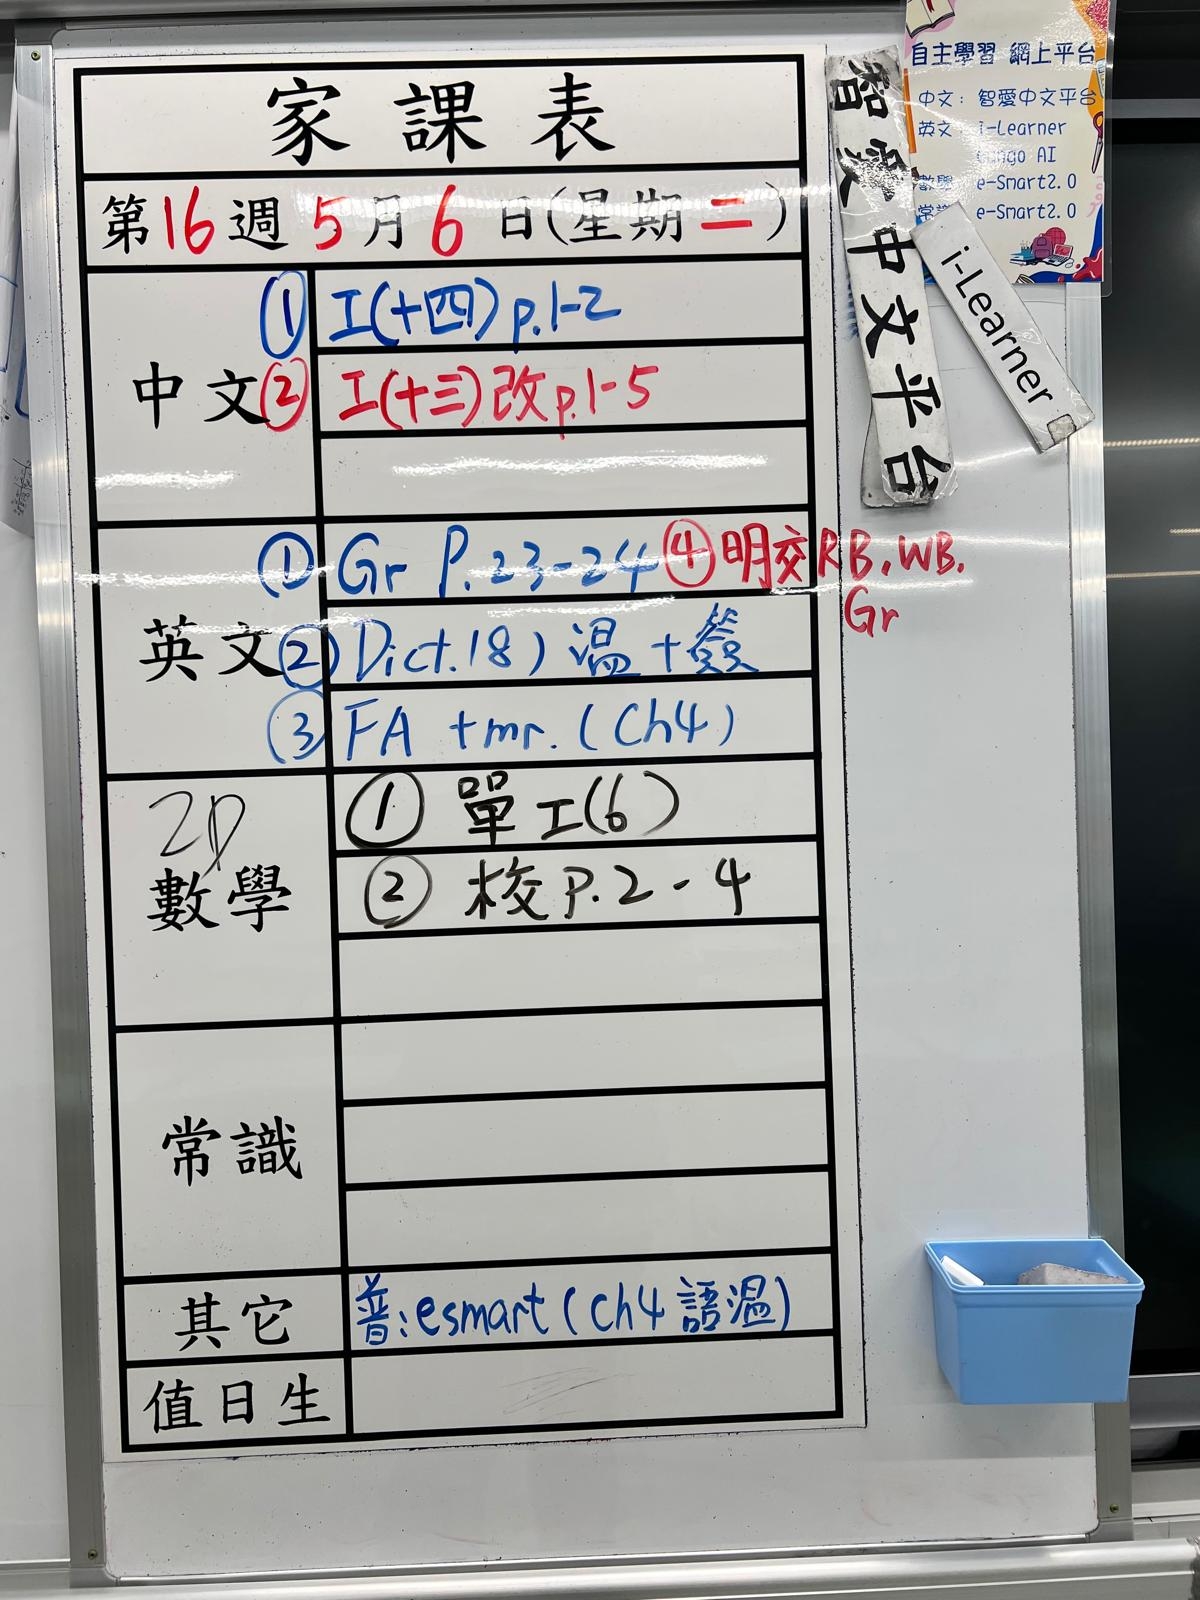 家課表
第16週5月6日(星期二)
中文
① 工(十四) p.1-2
② 工(十三) 改 p.1-5
英文
① Gr P.23-24 ④ 明交 RB, WB,
Gr
② Dict.18) 溫+簽
③ FA +mr. (Ch4)
2D
數學
① 單工(6)
② 校 P.2-4
常識
其它
普:esmart (Ch4 語溫)
值日生
智愛中文平台
i-Learner
自主學習 網上平台
中文: 智愛中文平台
英文 i-Learner
AI
數學 e-Smart2.0
常 e-Smart2.0